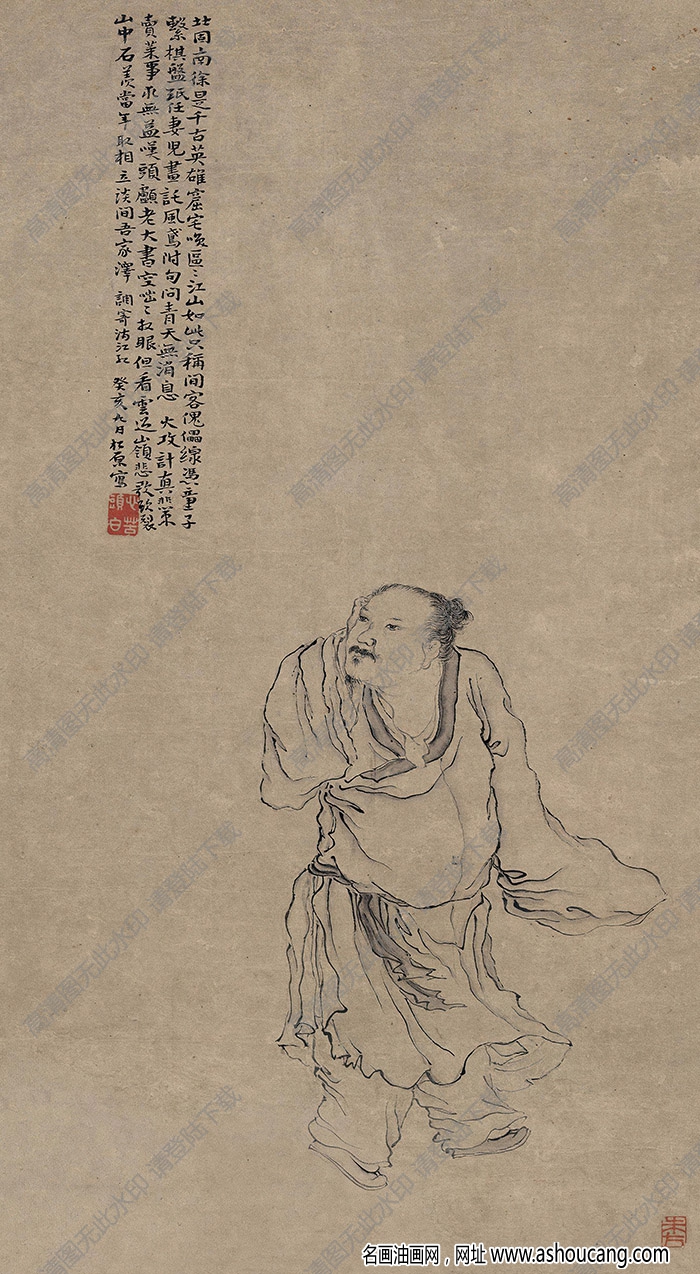 北固南徐是千古英雄窟宅喚區〻江山如此只稱間客傀儡線憑童子
繫棋盤紙任妻兒畫託風鳶附句問青天無消息 火攻計真非策
賣萊事永無益嘆頭顱老大書空咄〻放眼但看雲近嶺悲歌欲裂
山中石羨當年取相立談間吾家澤 調寄滿江紅 癸亥九日松原寫
高清图无此水印 请登陆下载
名画油画网，网址 www.ashoucang.com